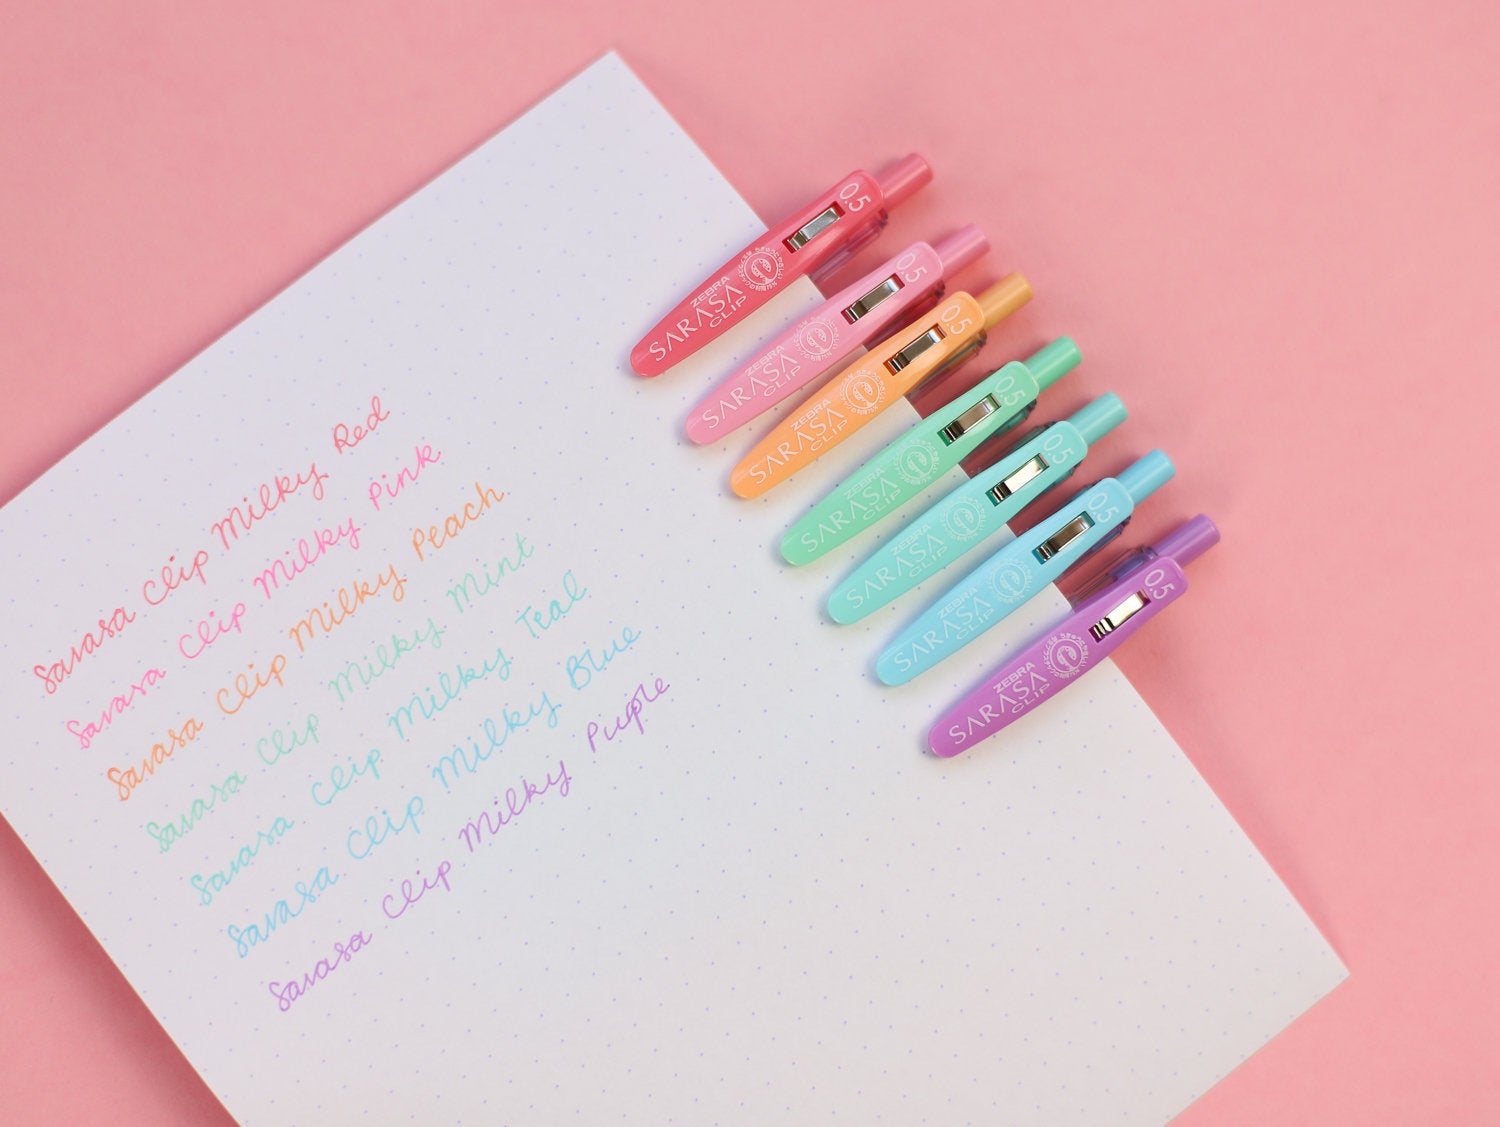 Sarasa Clip Milky Red
Sarasa Clip Milky Pink
Sarasa Clip Milky Peach
Sarasa Clip Milky Mint
Sarasa Clip Milky Teal
Sarasa Clip Milky Blue
Sarasa Clip Milky Purple
ZEBRA
SARASA
CLIP
0.5
ZEBRA
SARASA
CLIP
0.5
ZEBRA
SARASA
CLIP
0.5
ZEBRA
SARASA
CLIP
0.5
ZEBRA
SARASA
CLIP
0.5
ZEBRA
SARASA
CLIP
0.5
ZEBRA
SARASA
CLIP
0.5